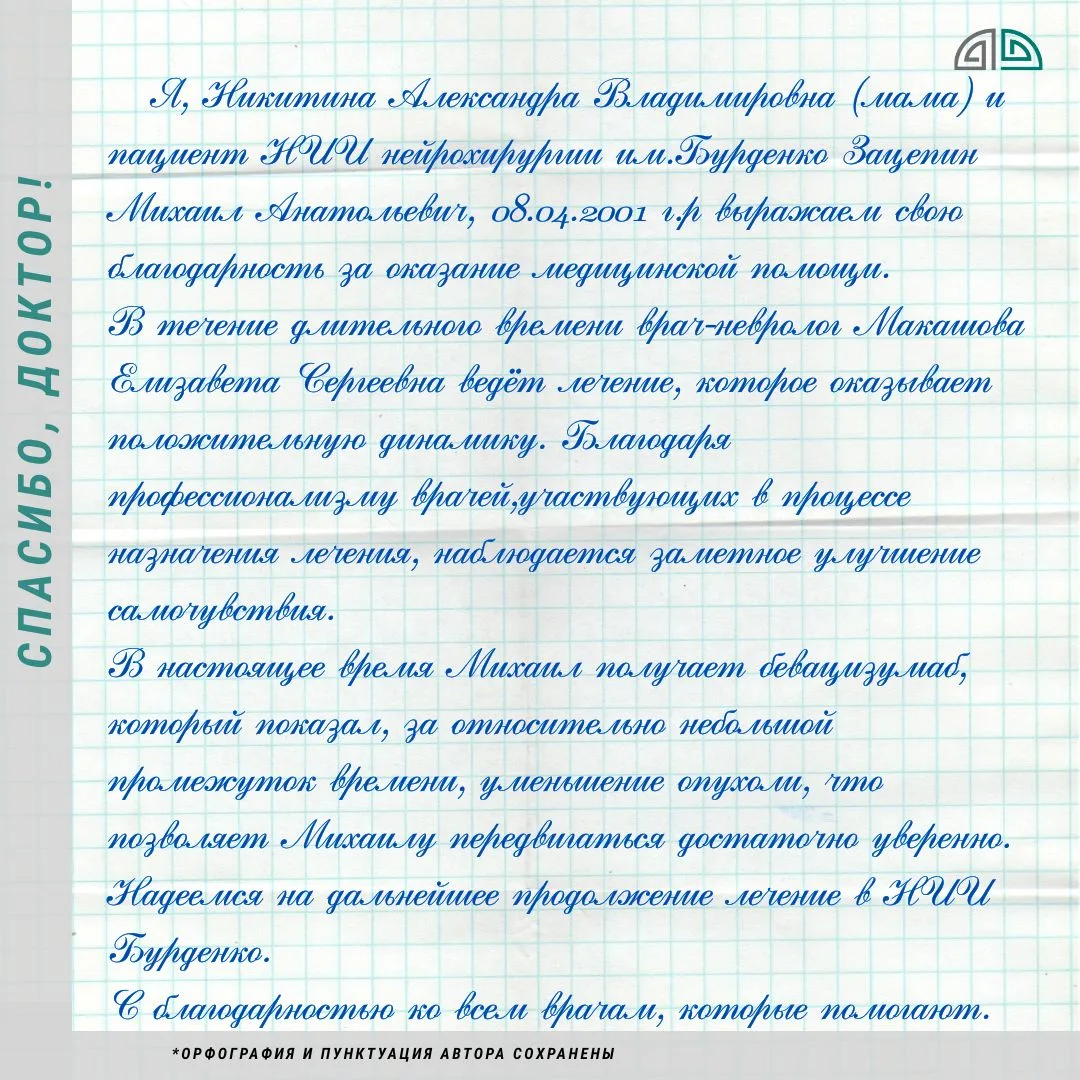 СПАСИБО, ДОКТОР!
Я, Никитина Александра Владимировна (мама) и
пациент НИИ нейрохирургии им.Бурденко Зацепин
Михаил Анатольевич, 08.04.2001 г.р выражаем свою
благодарность за оказание медицинской помощи.
В течение длительного времени врач-невролог Макашова
Елизавета Сергеевна ведёт лечение, которое оказывает
положительную динамику. Благодаря
профессионализму врачей,участвующих в процессе
назначения лечения, наблюдается заметное улучшение
самочувствия.
В настоящее время Михаил получает бевацизумаб,
который показал, за относительно небольшой
промежуток времени, уменьшение опухоли, что
позволяет Михаилу передвигаться достаточно уверенно.
Надеемся на дальнейшее продолжение лечение в НИИ
Бурденко.
С благодарностью ко всем врачам, которые помогают.
*ОРФОГРАФИЯ И ПУНКТУАЦИЯ АВТОРА СОХРАНЕНЫ